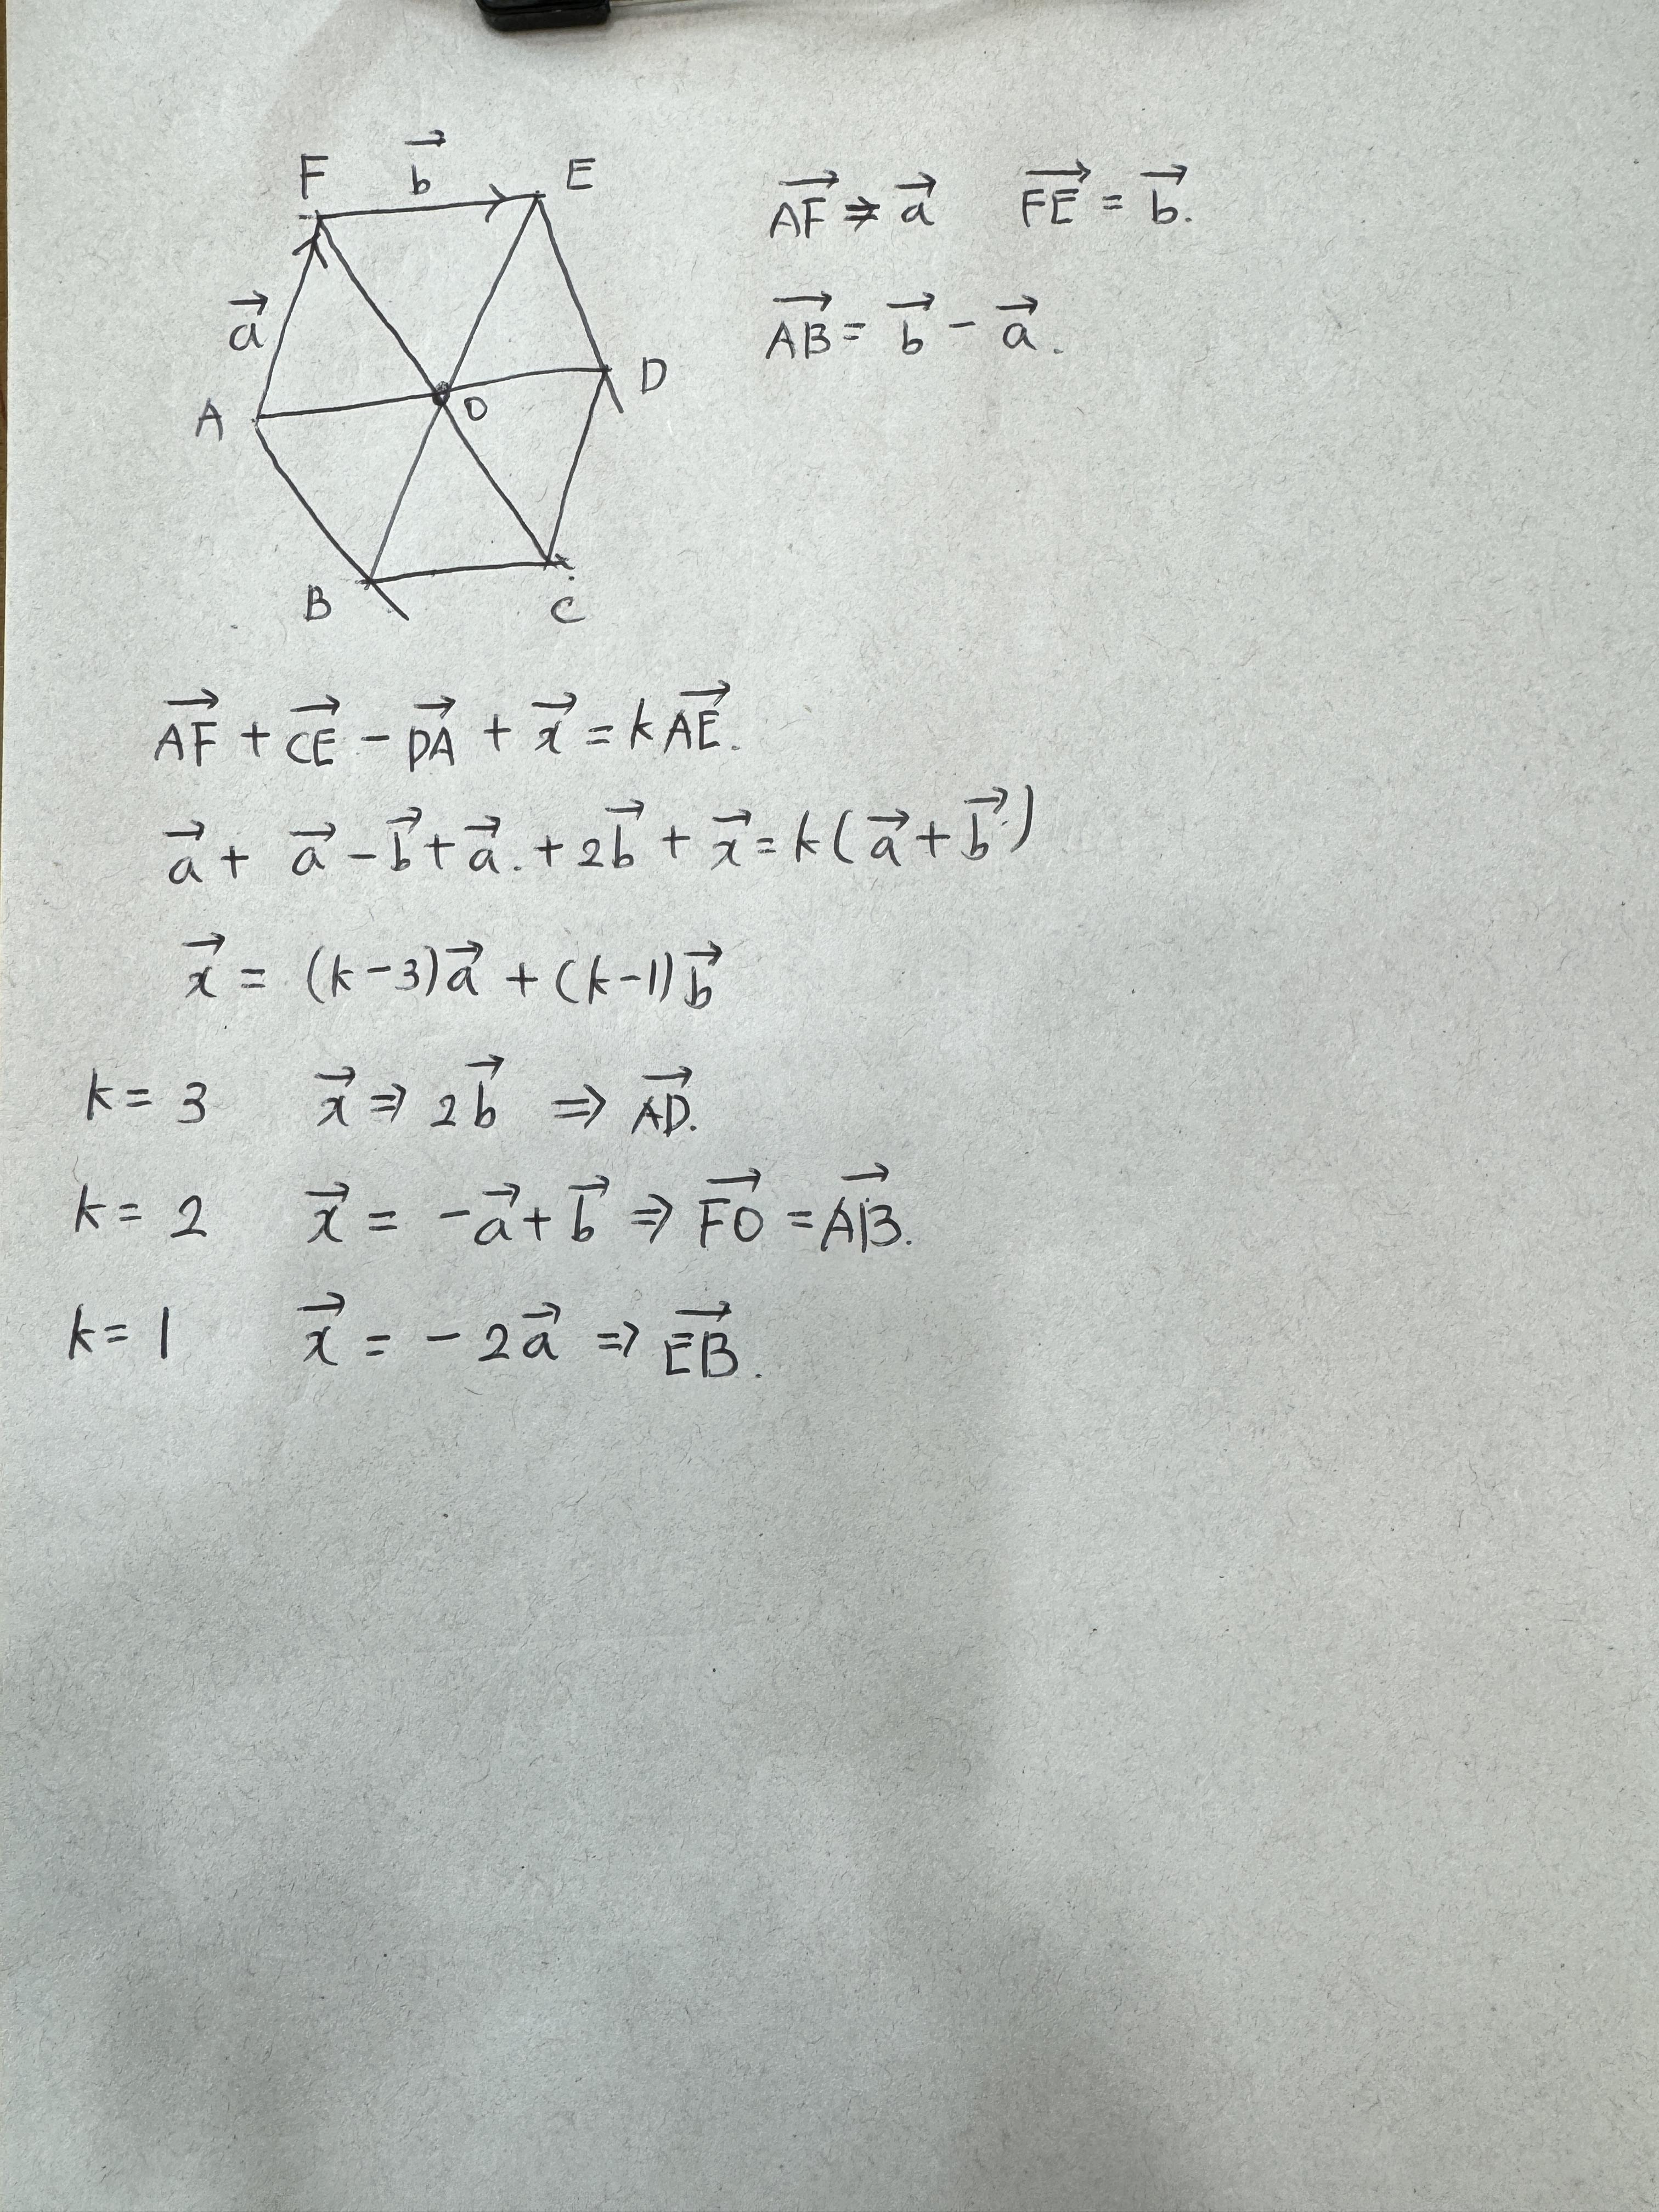 F b⃗ E
a⃗
A O D
B C
AF⃗ ⇒ a⃗ FE⃗ = b⃗.
AB⃗ = b⃗ - a⃗.
AF⃗ + CE⃗ - DA⃗ + x⃗ = kAE⃗.
a⃗ + a⃗ - b⃗ + a⃗. + 2b⃗ + x⃗ = k(a⃗ + b⃗)
x⃗ = (k-3)a⃗ + (k-1)b⃗
k = 3 x⃗ ⇒ 2b⃗ ⇒ AD⃗.
k = 2 x⃗ = -a⃗ + b⃗ ⇒ FO⃗ = AB⃗.
k = 1 x⃗ = -2a⃗ ⇒ EB⃗.